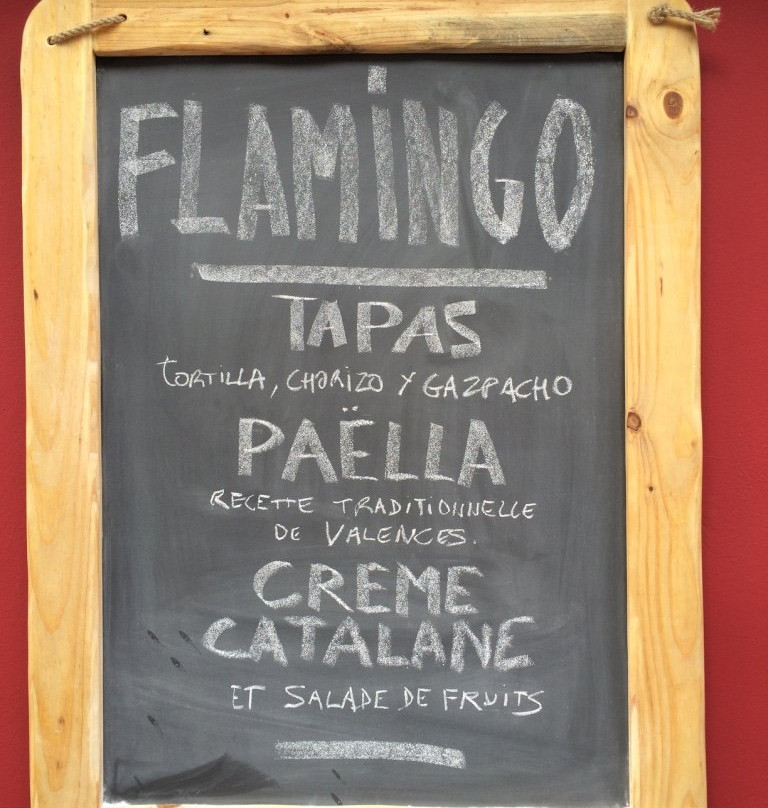 FLAMiNGO
TAPAS
TORTILLA, CHORIZO Y GAZPACHO
PAËLLA
RECETTE TRADITIONNELLE
DE VALENCES.
CREME
CATALANE
ET SALADE DE FRUITS